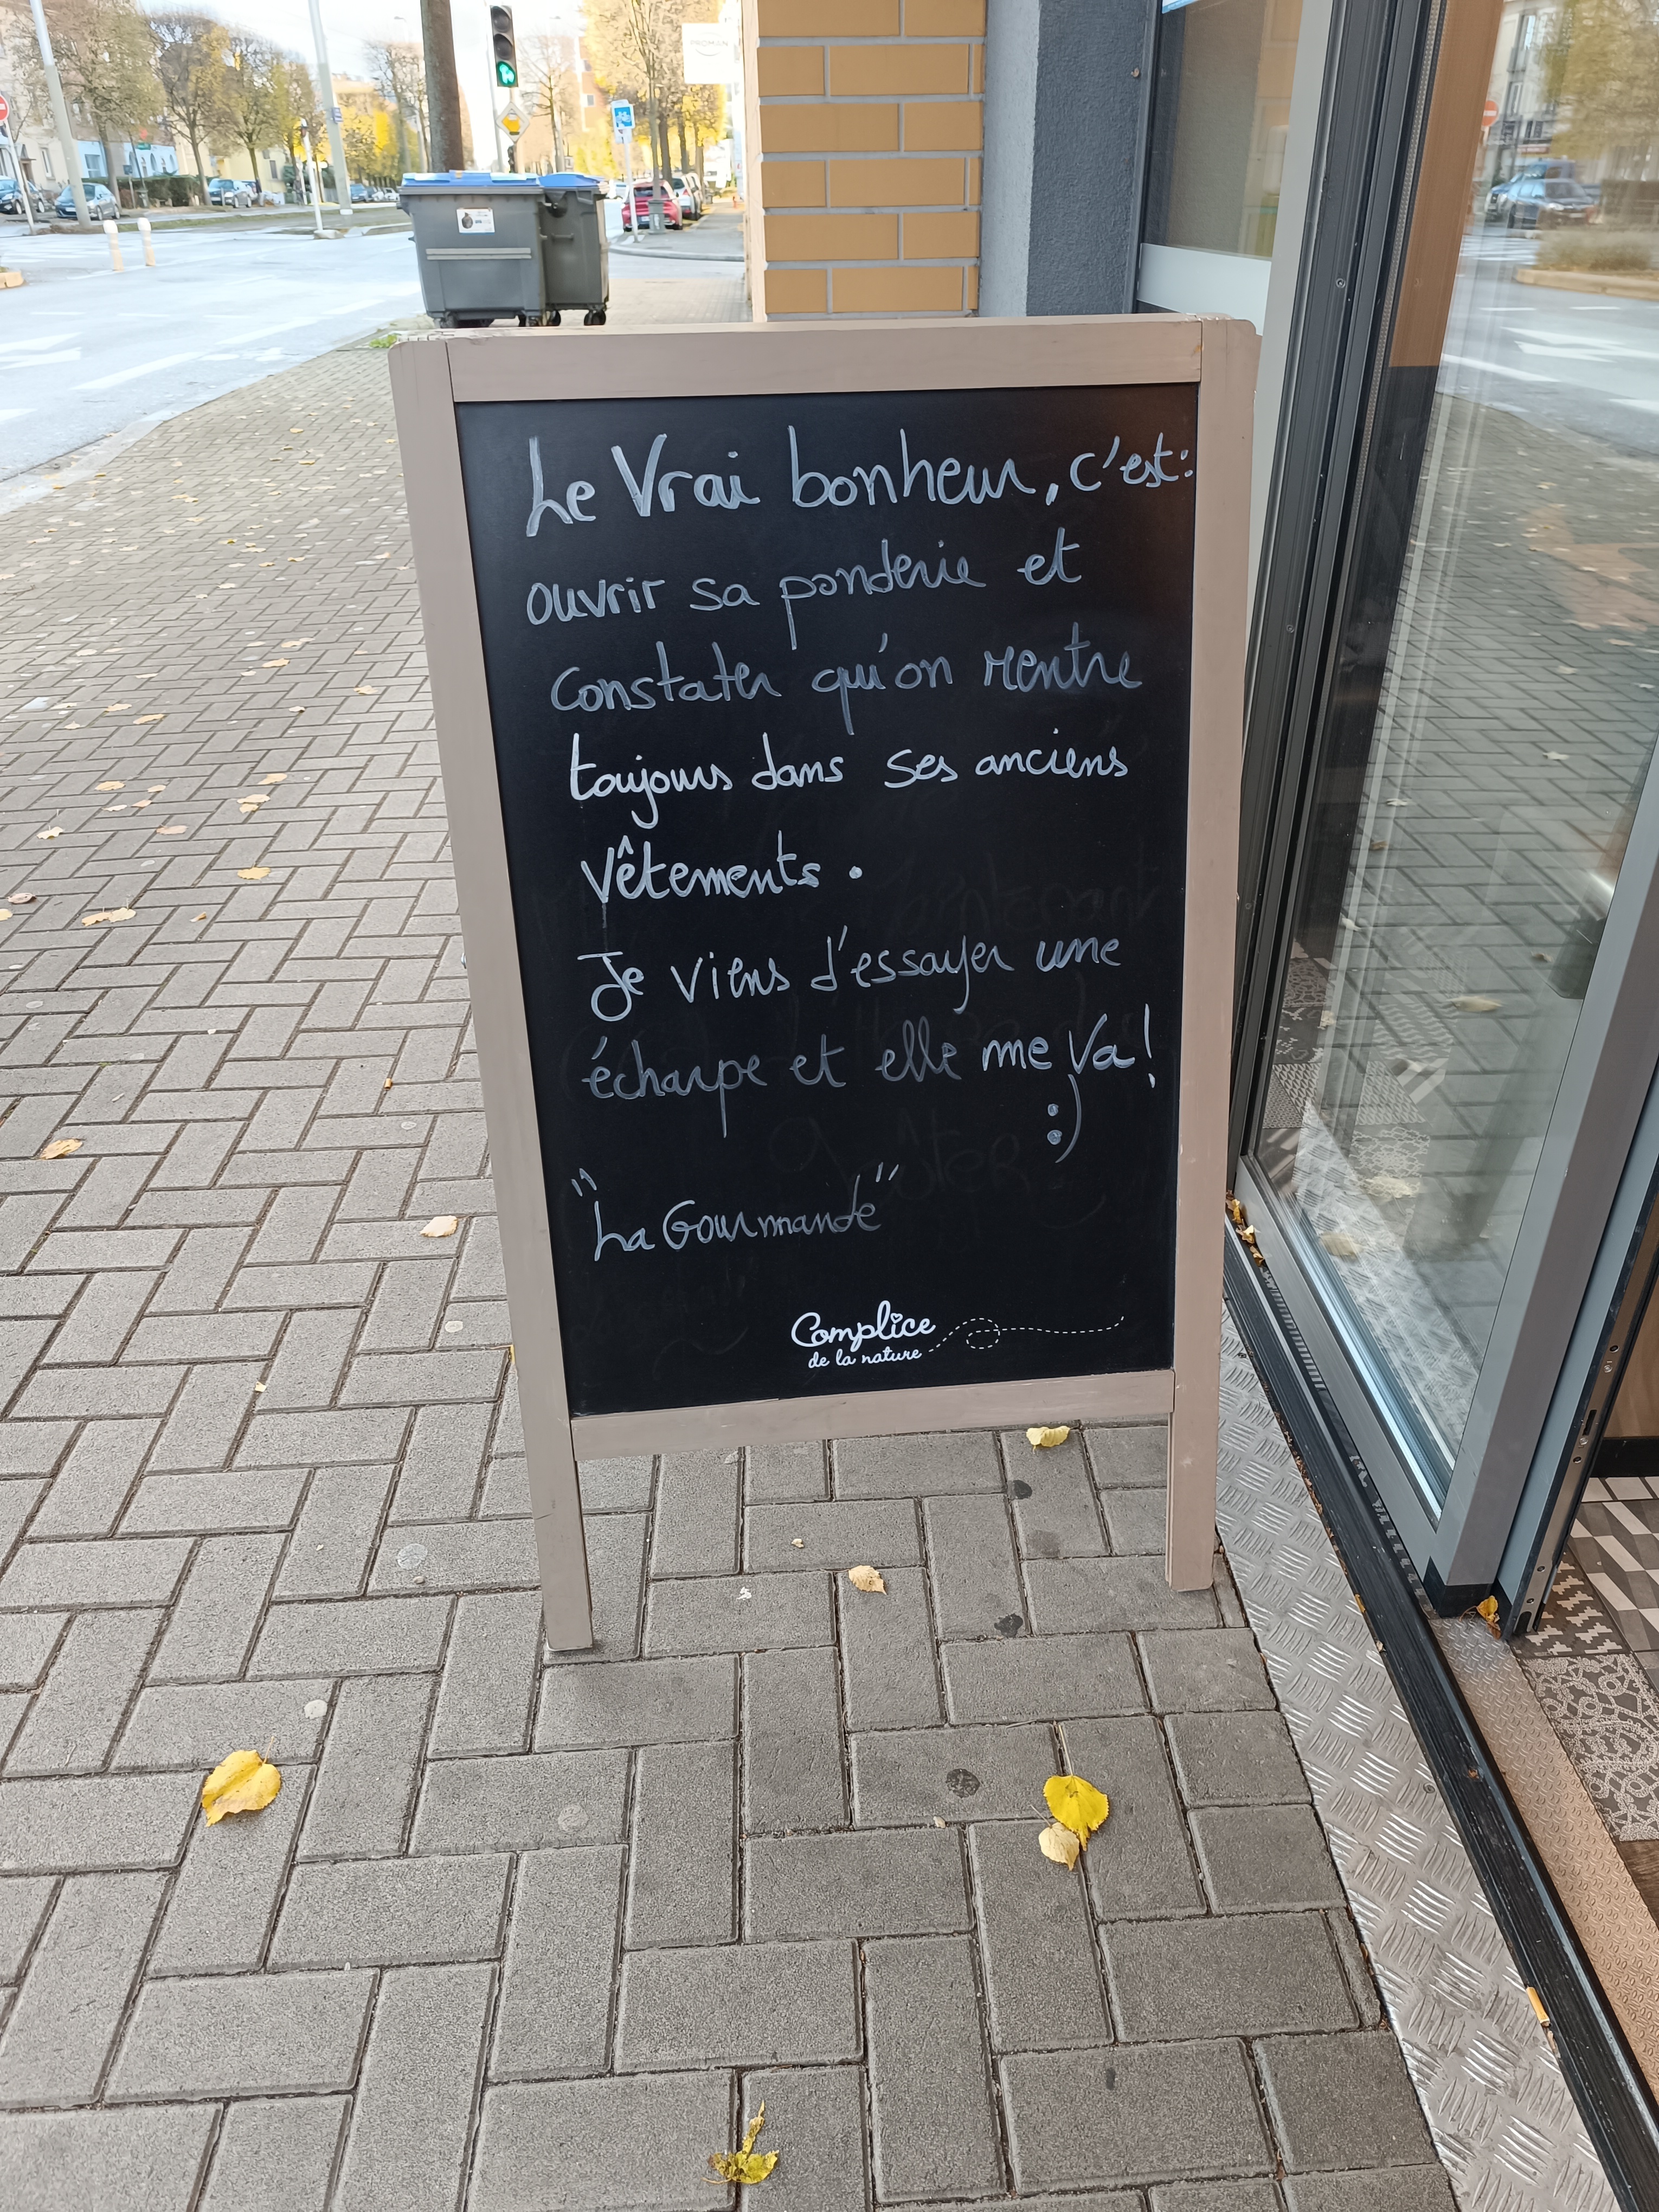 Le Vrai bonheur, c'est:
ouvrir sa penderie et
constater qu'on rentre
toujours dans ses anciens
vêtements.
Je viens d'essayer une
écharpe et elle me va!
:)
"La Gourmande"
Complice
de la nature